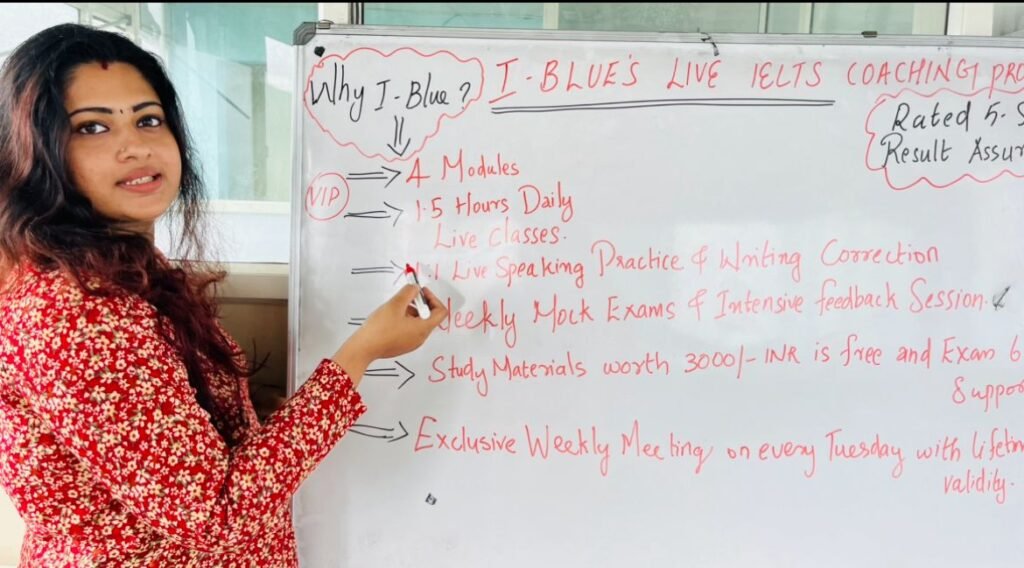 Why I-Blue?
I-BLUE'S LIVE IELTS COACHING PRO
Rated 5-S
Result Assur
VIP
4 Modules
1.5 Hours Daily
Live Classes.
1:1 Live Speaking Practice & Writing Correction
Weekly Mock Exams & Intensive feedback Session.
Study Materials worth 3000/- INR is free and Exam
Suppo
Exclusive Weekly Meeting on every Tuesday with lifetim
validity.